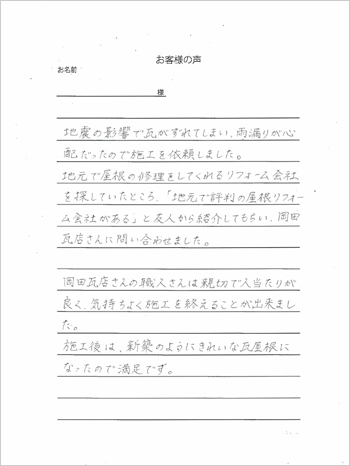 お客様の声
お名前
様
地震の影響で瓦がずれてしまい、雨漏りが心
配だったので施工を依頼しました。
地元で屋根の修理をしてくれるリフォーム会社
を探していたところ、「地元で評判の屋根リフォ
ーム会社がある」と友人から紹介してもらい、岡田
瓦店さんに問い合わせました。
岡田瓦店さんの職人さんは親切で人当たりが
良く、気持ちよく施工を終えることが出来まし
た。
施工後は、新築のようにきれいな瓦屋根に
なったので満足です。